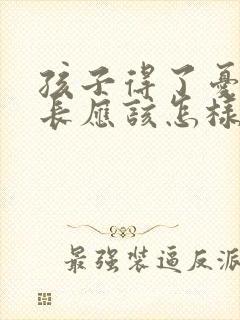 孩子得了憂
長應該怎樣
最强装逼反派